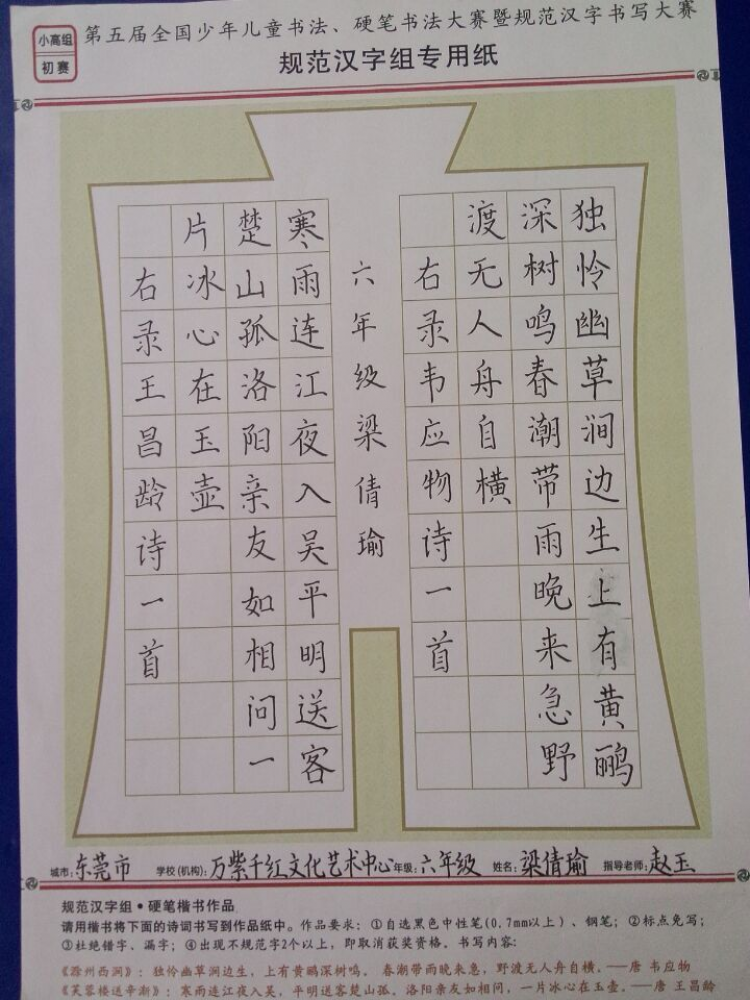 小高组
初赛
第五届全国少年儿童书法、硬笔书法大赛暨规范汉字书写大赛
规范汉字组专用纸
独怜幽草涧边生上有黄鹂
深树鸣春潮带雨晚来急野
渡无人舟自横
右录韦应物诗一首
六年级梁倩瑜
寒雨连江夜入吴平明送客
楚山孤洛阳亲友如相问一
片冰心在玉壶
右录王昌龄诗一首
城市:东莞市 学校(机构):万紫千红文化艺术中心 年级:六年级 姓名:梁倩瑜 指导老师:赵玉
规范汉字组·硬笔楷书作品
请用楷书将下面的诗词书写到作品纸中。作品要求:①自选黑色中性笔(0.7mm以上)、钢笔;②标点免写;
③杜绝错字、漏字;④出现不规范字2个以上,即取消获奖资格。书写内容:
《滁州西涧》:独怜幽草涧边生,上有黄鹂深树鸣。春潮带雨晚来急,野渡无人舟自横。——唐 韦应物
《芙蓉楼送辛渐》:寒雨连江夜入吴,平明送客楚山孤。洛阳亲友如相问,一片冰心在玉壶。——唐 王昌龄